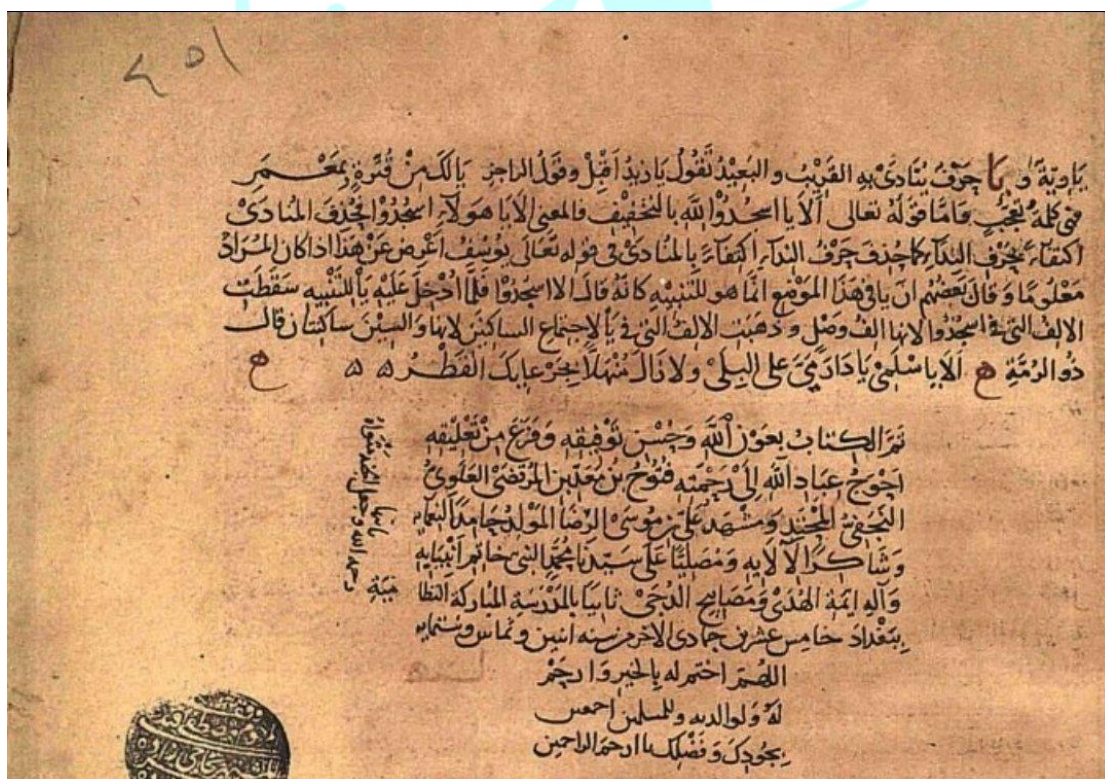 ٤٥١
بادية و يا حَرْفٌ يُنَادَى بِهِ القَرِيْبُ و البَعِيْدُ تَقُولُ يا زيدُ أَقْبِلْ وقَوْلُ الراجز يَا لَكِ مِنْ قُبَّرَةٍ بِمَعْمَرِ
فهى كلمةُ تَعَجُّبٍ فاما قولُهُ تعالى أَلَا يا اسجُدُوْا لِلّهِ بالتخفيف فالمعنى الا يا هولاءِ اسجُدُوْا فحُذِفَ المُنادَىْ
اكتفاءً بِحَرْفِ الندآءِ كما حُذِفَ حَرْفُ النداءِ اكتفآءً بِالمُنادَىْ فى قوله تَعَالَى يُوسُفُ اَعْرِضْ عَنْ هَذَا اذا كان المُرَادُ
مَعْلُومًا وَ قَالَ بَعْضُهُم ان يا فى هَذا المَوْضِعِ انَّمَا هو للتنبيهِ كانَهُ قالَ الا اسجدُوْا فلمَّا اُدْخِلَ عَلَيْهِ يا للتَّنْبِيهِ سَقَطَتْ
الالِفُ التى فى اسجُدُوْا لانها الفُ وَصْلٍ و ذَهَبَتِ الالِفُ التى فى يا لاِجتماع الساكنَيْنِ لانها وَ السِيْنَ ساكنتان قال
ذُو الرُمَّةِ الا يا اسْلَمِىْ يا دَارَ مَىَّ عَلى البِلَىْ ولا زالَ مُنْهَلاًّ بِجَرْعايكِ القَطْرُ
تمَّ الكتابُ بعَوْنِ اللّٰهِ وَحُسْنِ تَوْفِيقِه وَفَرَغَ مِنْ تَعْلِيْقِه
اَحْوَجُ عِبَادِ اللّه اِلَى رَحْمَتِه فتُوح بن مَعَدّ بن المُرتضَى العَلَوِىُّ
النجَفىُّ المَحْتِد وَمَشْهَدُ عَلىِّ بن مُوسَى الرِضَا المَوْلِدُ حَامِدًا لِنعْمايه
وَ شَاكِرًا لآلايِه وَمُصَلِّيًا عَلَى سَيّدِنا مُحَمَّدٍ النبى خاتم اَنْبِيَايِه
وَآلِهِ ايمَّةِ الهُدَىْ وَمَصَابِيْحِ الدُجَىْ ثانيًا بالمَدْرَسَةِ المُبارَكَةِ النظا
مِيَّة
بِبَغْدَادَ خامِس عِشْرِيْن جمادى الاخر من سنه اثنين و ثمانين وستمايه
اللهُمَّ اختم له بِالخَيْرِ وَ ارحَمْ
لَهُ وَلِوالِدَيه وللمسلمين اجمعين
بِجُودِكَ وَفَضْلِكَ يا ارحَمَ الراحمين
رحمه الله وجعل الجنة مثواه